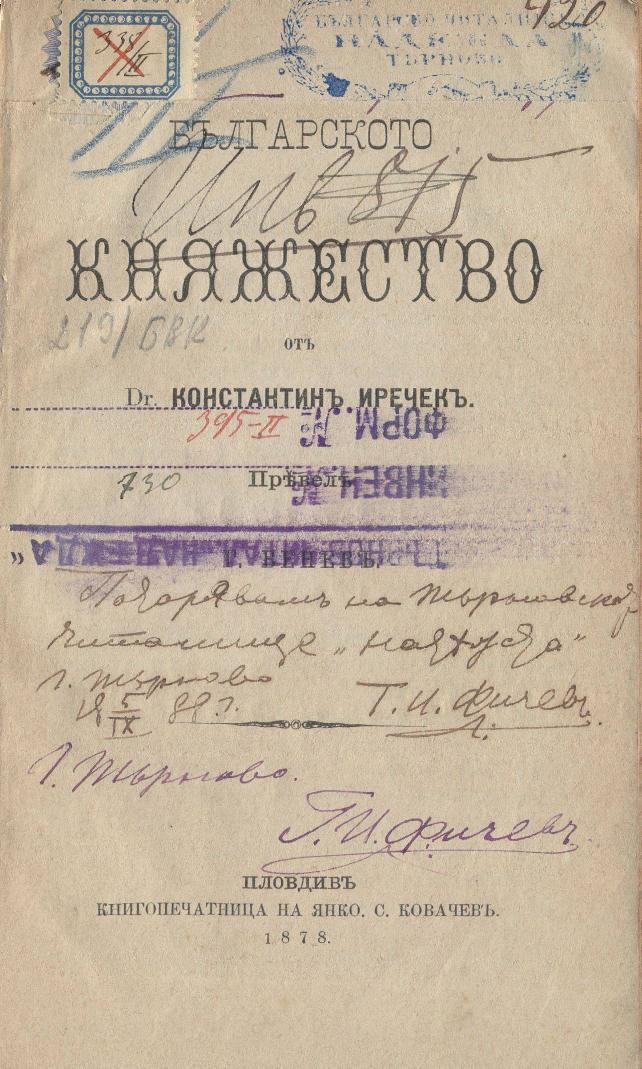 420
338/II
БЪЛГАРСКО ЧИТАЛИ
НАДЕЖДА
ТЪРНОВО
БЪЛГАРСКОТО
Инв 815
КНЯЖЕСТВО
219/БВК
отъ
Dr. КОНСТАНТИНЪ ИРЕЧЕКЪ.
ФОРМ. №
395-II
ИНВЕН №
730
Прѣвелъ
НАДЕЖДА
Подарявамъ на Търновско
Читалище „Надѣжда"
г. Търново
18 5/IX 88 г.
Т. И. Фичевъ.
Г. Търново.
Г. И. Фичевъ.
ПЛОВДИВЪ
КНИГОПЕЧАТНИЦА НА ЯНКО. С. КОВАЧЕВЪ.
1878.